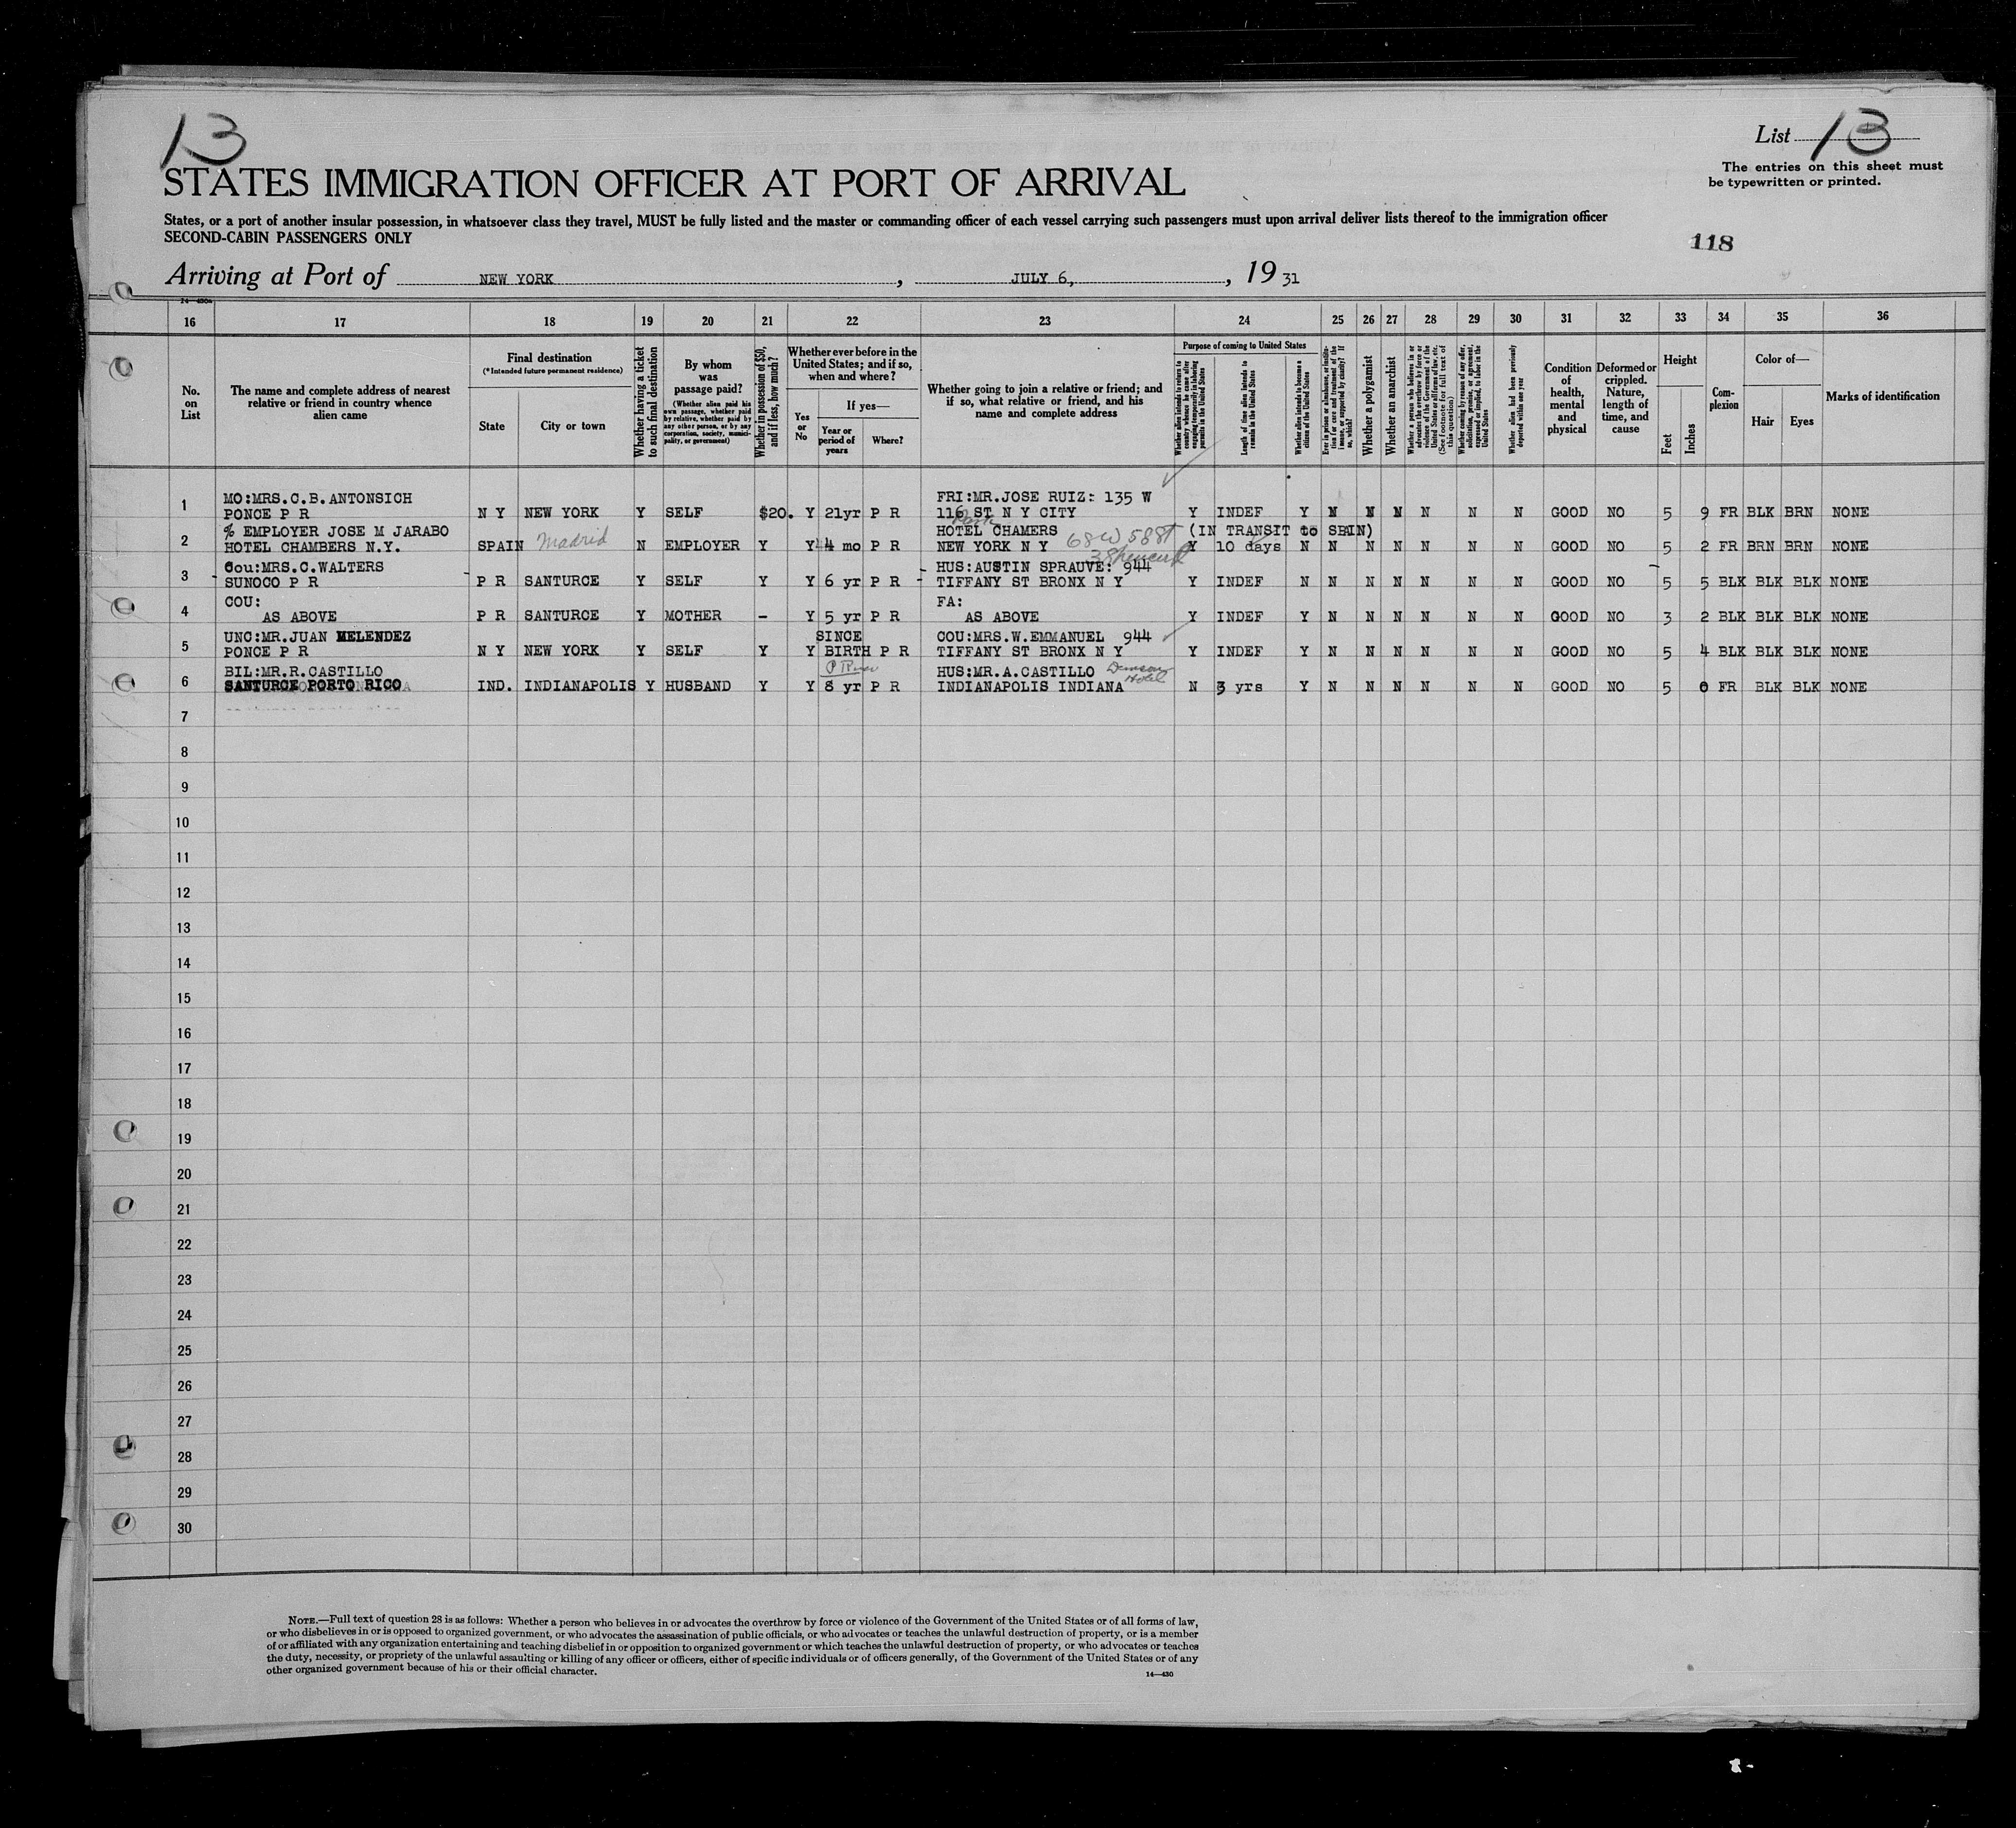 13
List 13
The entries on this sheet must
be typewritten or printed.
STATES IMMIGRATION OFFICER AT PORT OF ARRIVAL
States, or a port of another insular possession, in whatsoever class they travel, MUST be fully listed and the master or commanding officer of each vessel carrying such passengers must upon arrival deliver lists thereof to the immigration officer
SECOND-CABIN PASSENGERS ONLY
118
Arriving at Port of NEW YORK , JULY 6, , 19 31
14—430a
16 17 18 19 20 21 22 23 24 25 26 27 28 29 30 31 32 33 34 35 36
No. on List
The name and complete address of nearest relative or friend in country whence alien came
Final destination
(*Intended future permanent residence)
State
City or town
Whether having a ticket to such final destination
By whom was passage paid?
(Whether alien paid his own passage, whether paid by relative, whether paid by any other person, or by any corporation, society, municipality, or government)
Whether in possession of $50, and if less, how much?
Whether ever before in the United States; and if so, when and where?
Yes or No
If yes—
Year or period of years
Where?
Whether going to join a relative or friend; and if so, what relative or friend, and his name and complete address
Purpose of coming to United States
Whether alien intends to return to country whence he came after engaging temporarily in laboring pursuits in the United States
Length of time alien intends to remain in the United States
Whether alien intends to become a citizen of the United States
Ever in prison or almshouse, or institution for care and treatment of the insane, or supported by charity? If so, which?
Whether a polygamist
Whether an anarchist
Whether a person who believes in or advocates the overthrow by force or violence of the Government of the United States or all forms of law, etc. (See footnote for full text of this question)
Whether coming by reason of any offer, solicitation, promise, or agreement, expressed or implied, to labor in the United States
Whether alien had been previously deported within one year
Condition of health, mental and physical
Deformed or crippled. Nature, length of time, and cause
Height
Feet
Inches
Complexion
Color of—
Hair
Eyes
Marks of identification
MO:MRS.C.B.ANTONSICH FRI:MR.JOSE RUIZ: 135 W
1 PONCE P R N Y NEW YORK Y SELF $20. Y 21yr P R 116 ST N Y CITY Y INDEF Y N N N N N N GOOD NO 5 9 FR BLK BRN NONE
Park
% EMPLOYER JOSE M JARABO HOTEL CHAMERS (IN TRANSIT to SPAIN)
68 W 58 ST
2 HOTEL CHAMBERS N.Y. SPAIN Madrid N EMPLOYER Y Y 4 mo P R NEW YORK N Y Y 10 days N N N N N N N GOOD NO 5 2 FR BRN BRN NONE
Cou:MRS.C.WALTERS HUS:AUSTIN SPRAUVE: 944
3 SUNOCO P R P R SANTURCE Y SELF Y Y 6 yr P R TIFFANY ST BRONX N Y Y INDEF N N N N N N N GOOD NO 5 5 BLK BLK BLK NONE
COU: FA:
4 AS ABOVE P R SANTURCE Y MOTHER - Y 5 yr P R AS ABOVE Y INDEF Y N N N N N N GOOD NO 3 2 BLK BLK BLK NONE
UNC:MR.JUAN MELENDEZ SINCE COU:MRS.W.EMMANUEL 944
5 PONCE P R N Y NEW YORK Y SELF Y Y BIRTH P R TIFFANY ST BRONX N Y Y INDEF Y N N N N N N GOOD NO 5 4 BLK BLK BLK NONE
BIL:MR.R.CASTILLO HUS:MR.A.CASTILLO Hotel
6 SANTURCE PORTO RICO IND. INDIANAPOLIS Y HUSBAND Y Y 8 yr P R INDIANAPOLIS INDIANA N 3 yrs Y N N N N N N GOOD NO 5 0 FR BLK BLK NONE
7
8
9
10
11
12
13
14
15
16
17
18
19
20
21
22
23
24
25
26
27
28
29
30
NOTE.—Full text of question 28 is as follows: Whether a person who believes in or advocates the overthrow by force or violence of the Government of the United States or of all forms of law,
or who disbelieves in or is opposed to organized government, or who advocates the assassination of public officials, or who advocates or teaches the unlawful destruction of property, or is a member
of or affiliated with any organization entertaining and teaching disbelief in or opposition to organized government or which teaches the unlawful destruction of property, or who advocates or teaches
the duty, necessity, or propriety of the unlawful assaulting or killing of any officer or officers, either of specific individuals or of officers generally, of the Government of the United States or of any
other organized government because of his or their official character.
14—430